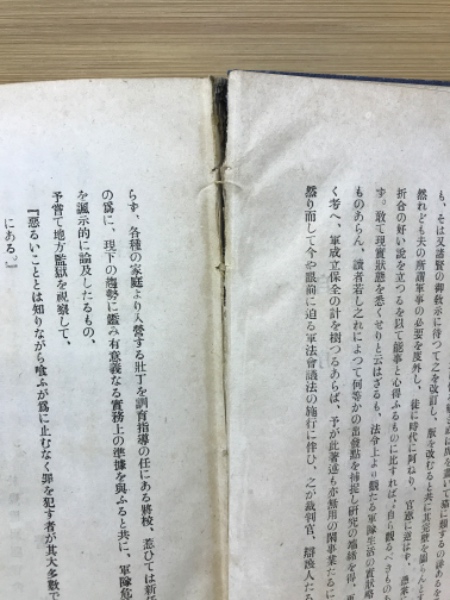 も、そは又諸賢の御教示に待つて之を改訂し、版を改むると共に其完璧を期らんと
然れども夫の所謂軍事の必要を度外し、徒に時代に阿ねり、官憲に逆はず、
折合の好い說を立つるを以て能事と心得ふるものに比すれば、自ら觀るべきものも
す。敢て現實狀態を悉くせりと云はざるも、法令上より觀たる軍隊生活の實狀
ものあらん、讀者若し之れによつて何等かの出發點を捕捉し研究の端緖を得、
く考へ、軍成立保全の計を樹つるあらば、予が此著述も亦無用の閑事業たるに
然り而して今や眼前に迫る軍法會議法の施行に伴ひ、之が裁判官、辯護人た
らず、各種の家庭より入營する壯丁を訓育指導の任にある將校、惹ひては新
の爲に、現下の趨勢に鑑み有意義なる實務上の準據を與ふると共に、軍隊
を諷示的に論及したるもの、
予嘗て地方監獄を視察して、
『惡るいこととは知りながら喰ふが爲に止むなく罪を犯す者が其大多數で
にある。』